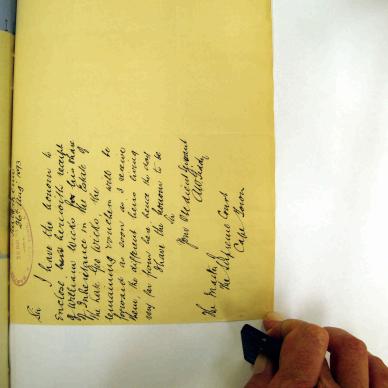 26th Aug. 1893
Sir
I have the honour to
enclose herewith receipt
of William Wicks for his share
of Inheritance in the Estate of
the late Geo Wicks. The
remaining vouchers will be
forward as soon as I receive
them, the different heirs living
very far from here hence the delay
I have the honour to be
Sir
Your Obedient Servant
The Master
The Supreme Court
Cape Town